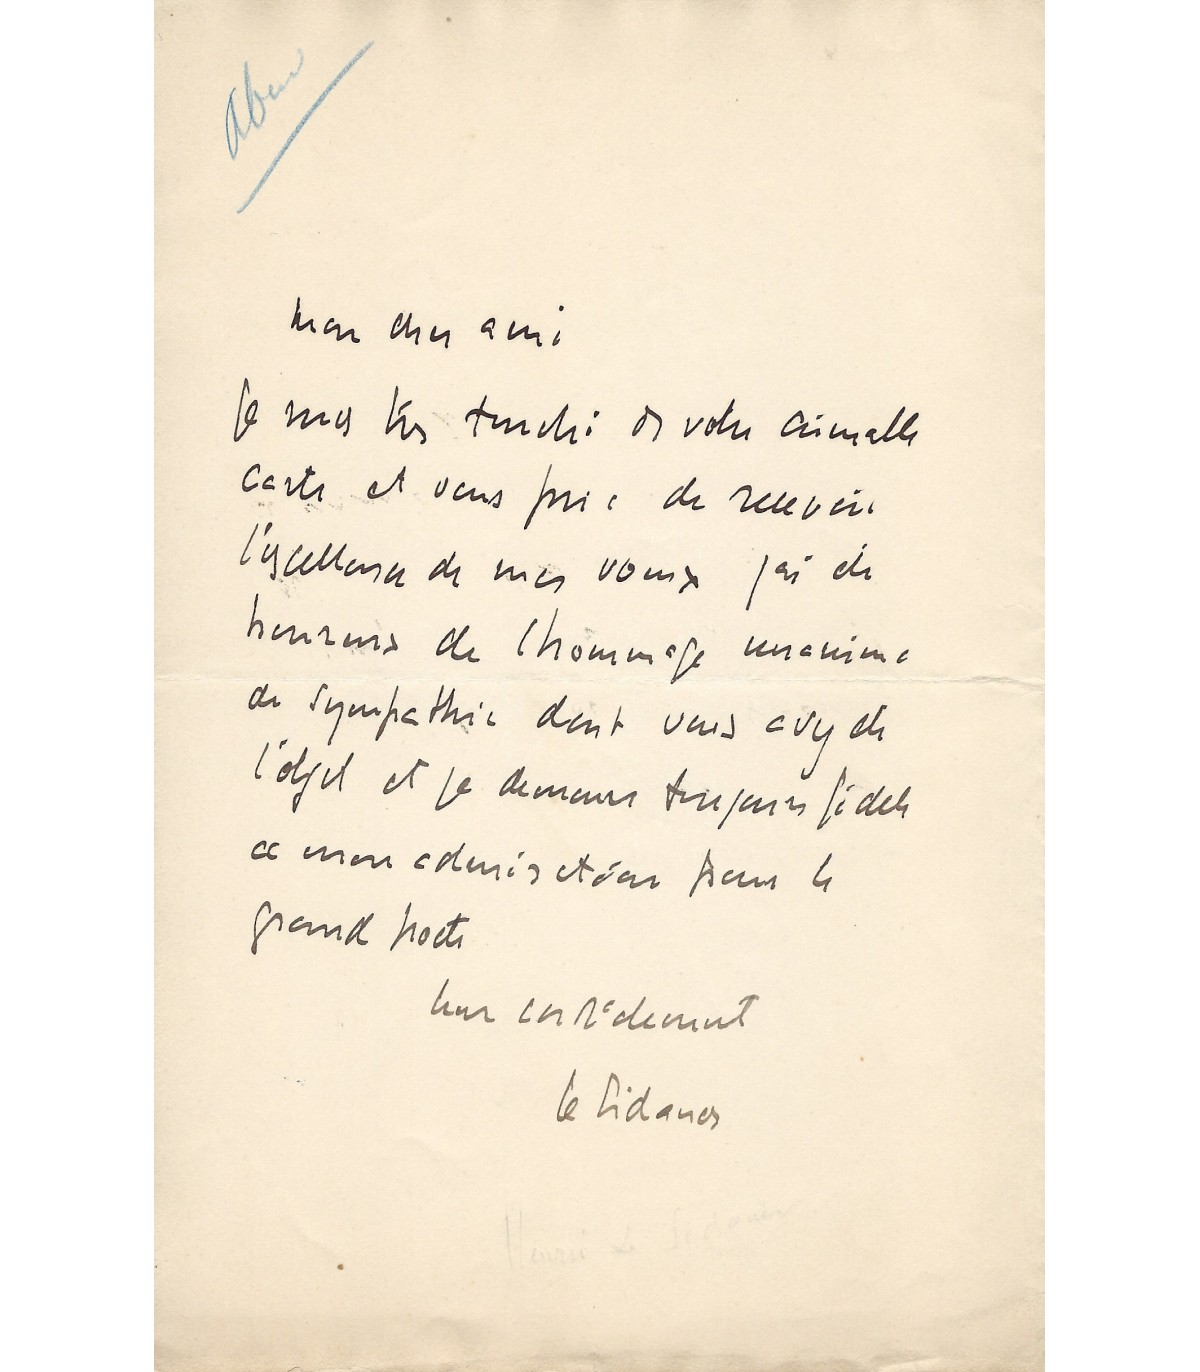 Mon cher ami
Je suis très touché de votre aimable
carte et vous prie de recevoir
l'excellence de mes vœux j'ai été
heureux de l'hommage unanime
de sympathie dont vous avez été
l'objet et je demeure toujours fidèle
a mon admiration pour le
grand poete
bien cordialement
Le Sidaner
Henri Le Sidaner